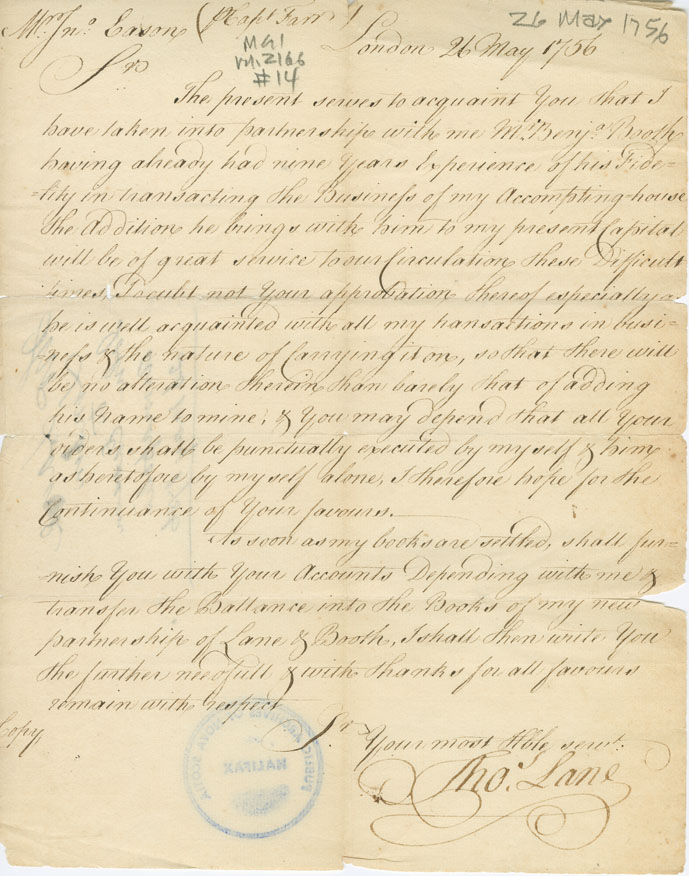 Mr. Jno. Eason (℔ Capt Farr)
26 May 1756
MG1
Vol. 2166
#14
London 26 May 1756
Sr.
The present serves to acquaint You that I
have taken into partnership with me Mr. Benja. Booth
having already had nine Years Experience of his Fide=
=lity in transacting the Business of my Accompting-house
The Addition he brings with him to my present Capital
will be of great service to our Circulation these Difficult
times I doubt not Your approbation thereof especially as
he is well acquainted with all my transactions in busi=
=ness & the nature of carrying it on, so that there will
be no alteration therein than barely that of adding
his name to mine; & You may depend that all Your
orders shall be punctually executed by myself & him
as heretofore by myself alone, I therefore hope for the
Continuance of Your favours.
As soon as my books are settled, shall fur=
=nish You with Your Accounts Depending with me &
transfer the Ballance into the Books of my new
partnership of Lane & Booth, I shall then write You
the further needfull & with thanks for all favours
remain with respect
Copy
Sr.
Your most Hble servt.
Thos. Lane
PUBLIC ARCHIVES OF NOVA SCOTIA
HALIFAX